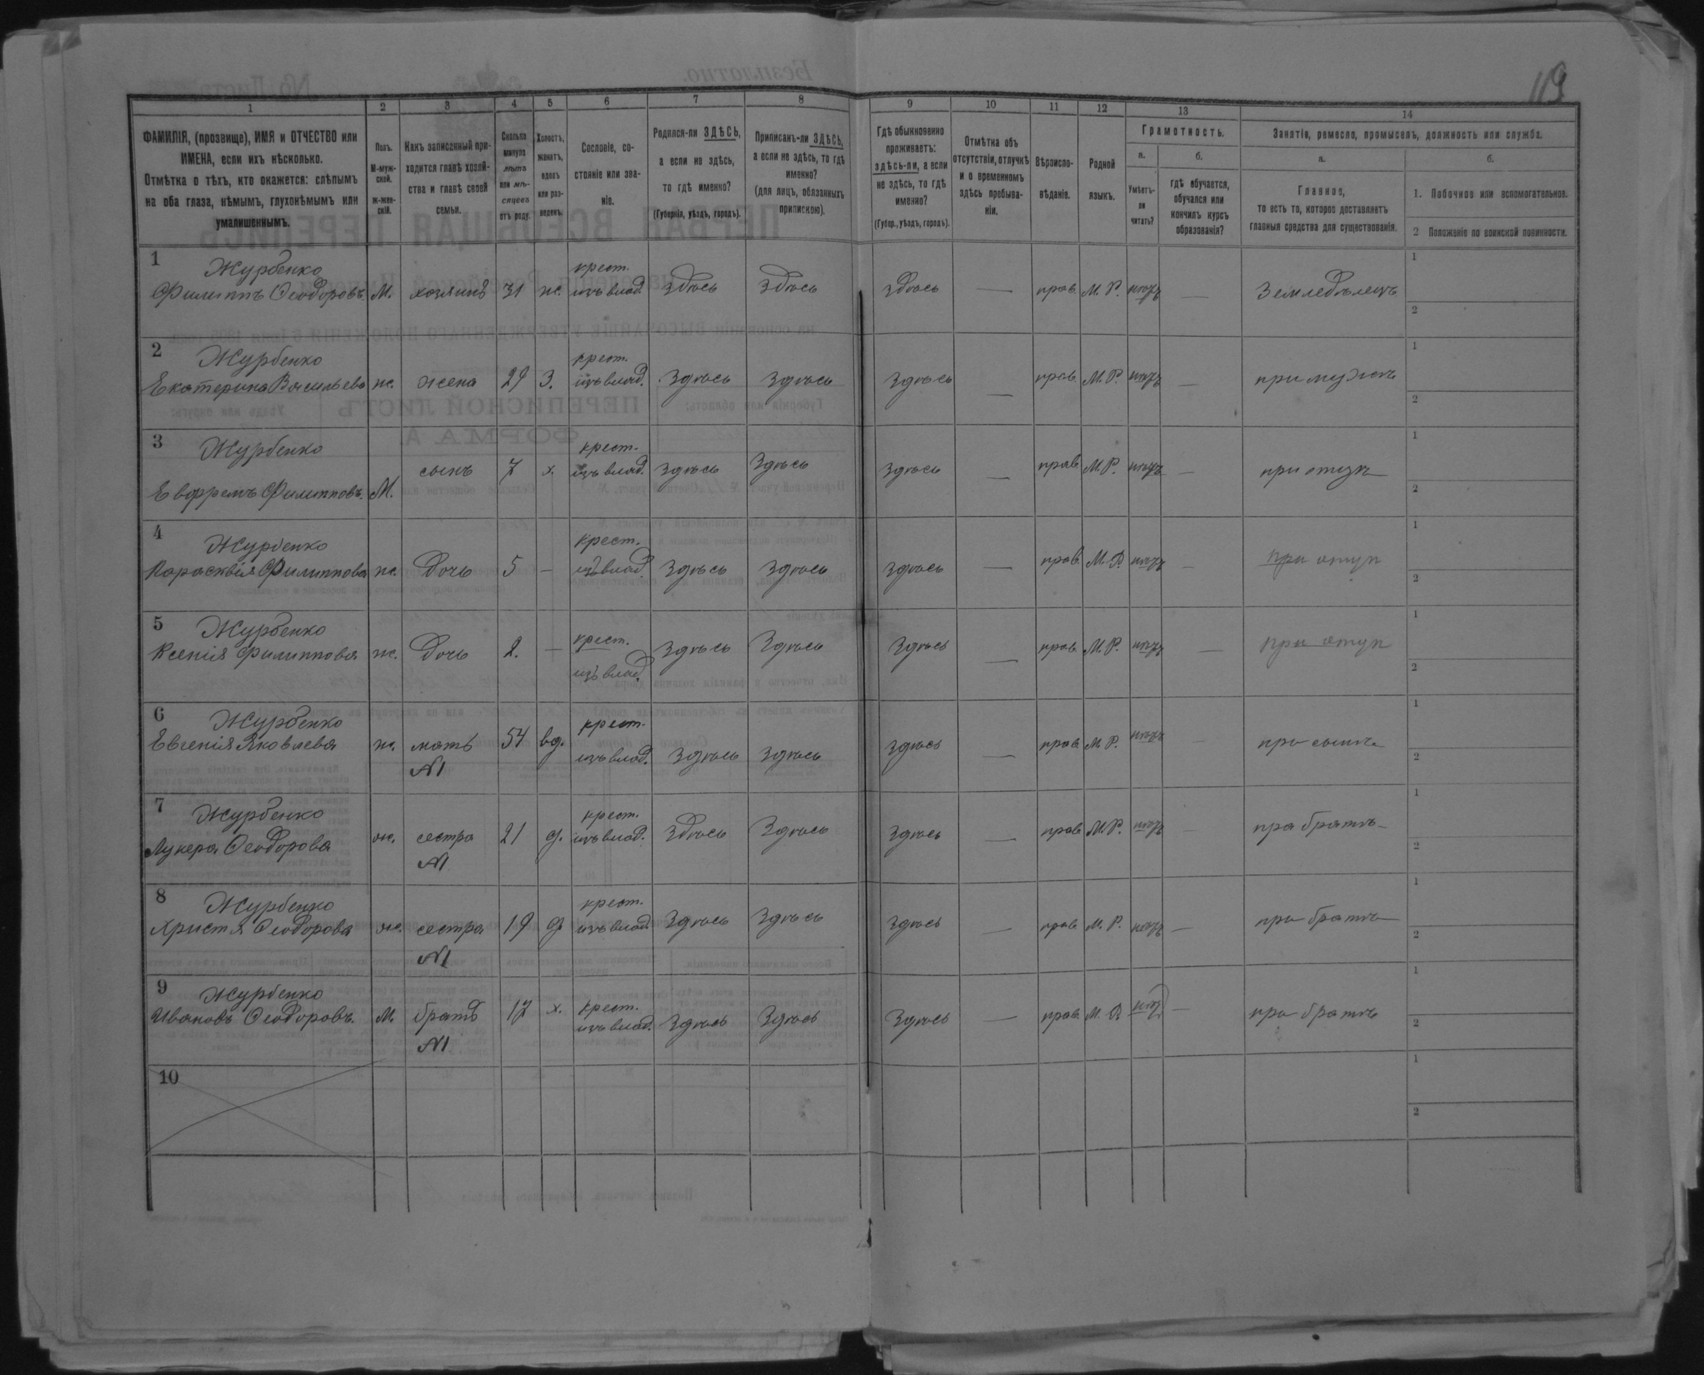 119
1 2 3 4 5 6 7 8 9 10 11 12 13 14
ФАМИЛІЯ, (прозвище), ИМЯ и ОТЧЕСТВО или
ИМЕНА, если ихъ нѣсколько.
Отмѣтка о тѣхъ, кто окажется: слѣпымъ
на оба глаза, нѣмымъ, глухонѣмымъ или
умалишеннымъ.
Полъ.
М-муж-
ской.
ж-жен-
скій.
Какъ записанный при-
ходится главѣ хозяй-
ства и главѣ своей
семьи.
Сколько
минуло
лѣтъ
или мѣ-
сяцевъ
отъ роду.
Холостъ,
женатъ,
вдовъ
или раз-
веденъ.
Сословіе, со-
стояніе или зва-
ніе.
Родился-ли ЗДѢСЬ,
а если не здѣсь,
то гдѣ именно?
(Губернія, уѣздъ, городъ).
Приписанъ-ли ЗДѢСЬ,
а если не здѣсь, то гдѣ
именно?
(для лицъ, обязанныхъ
припискою).
Гдѣ обыкновенно
проживаетъ:
здѣсь-ли, а если
не здѣсь, то гдѣ
именно?
(Губер., уѣздъ, городъ).
Отмѣтка объ
отсутствіи, отлучкѣ
и о временномъ
здѣсь пребыва-
ніи.
Вѣроиспо-
вѣданіе.
Родной
языкъ.
Грамотность.
а.
Умѣетъ-
ли
читать?
б.
гдѣ обучается,
обучался или
кончилъ курсъ
образованія?
Занятіе, ремесло, промыселъ, должность или служба.
а.
Главное,
то есть то, которое доставляетъ
главныя средства для существованія.
б.
1. Побочное или вспомогательное.
2 Положеніе по воинской повинности.
1 Журбенко крест. 1
Филиппъ Ѳеодоровъ М. хозяинъ 31 ж. изъ влад. Здѣсь Здѣсь здѣсь — прав. М. Р. нѣтъ — Земледѣлецъ
2
2 Журбенко крест. 1
Екатерина Васильева ж. жена 29 З. изъ влад. Здѣсь Здѣсь Здѣсь — прав. М. Р. нѣтъ — при мужѣ
2
3 Журбенко крест. 1
Ефремъ Филипповъ М. сынъ 7 х. изъ влад. Здѣсь Здѣсь Здѣсь — прав. М. Р. нѣтъ — при отцѣ
2
4 Журбенко крест. 1
Параскѣвія Филиппова ж. Дочь 5 — изъ влад. Здѣсь Здѣсь Здѣсь — прав. М. Р. нѣтъ — при отцѣ
2
5 Журбенко крест. 1
Ксенія Филиппова ж. Дочь 2. — изъ влад. Здѣсь Здѣсь Здѣсь — прав. М. Р. нѣтъ — при отцѣ
2
6 Журбенко крест. 1
Евгенія Яковлева ж. мать 54 вд. изъ влад. Здѣсь Здѣсь Здѣсь — прав. М. Р. нѣтъ — при сынѣ
№1 2
7 Журбенко крест. 1
Лукера Ѳеодорова ж. сестра 21 д. изъ влад. Здѣсь Здѣсь Здѣсь — прав. М. Р. нѣтъ — при братѣ
№1 2
8 Журбенко крест. 1
Христя Ѳеодорова ж. сестра 19 д. изъ влад. Здѣсь Здѣсь Здѣсь — прав. М. Р. нѣтъ — при братѣ
№1 2
9 Журбенко крест. 1
Ивановъ Ѳеодоровъ. М. братъ 17 х. изъ влад. Здѣсь Здѣсь Здѣсь — прав. М. Р. нѣт. — при братѣ
№1 2
10 1
2